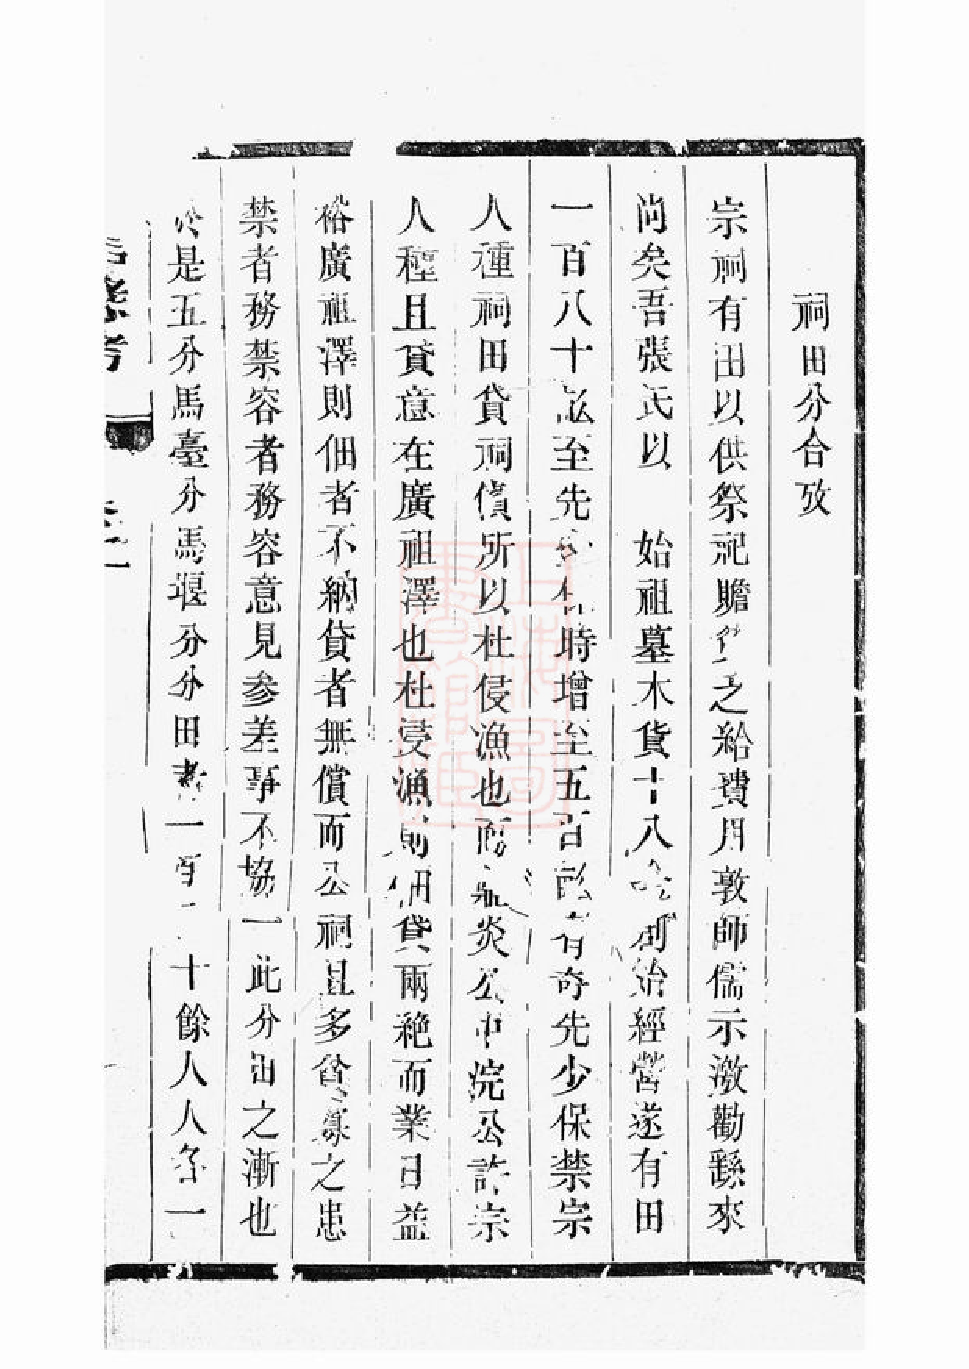 祠田分合攷
宗祠有田以供祭祀贍之給費用敦師儒示激勸繇來
尚矣吾張氏以 始祖墓木貨十八創始經營遂有田
一百八十訟至先少保時增至五百有奇先少保禁宗
人種祠田貸祠債所以杜侵漁也而炎公中浣公許宗
人種且貸意在廣祖澤也杜侵漁則佃貸兩絶而業日益
裕廣祖澤則佃者不納貸者無償而公祠且多貧之患
禁者務禁容者務容意見參差事不協一此分田之漸也
於是五分馬臺分馬堰分分田者一百二十餘人人各一